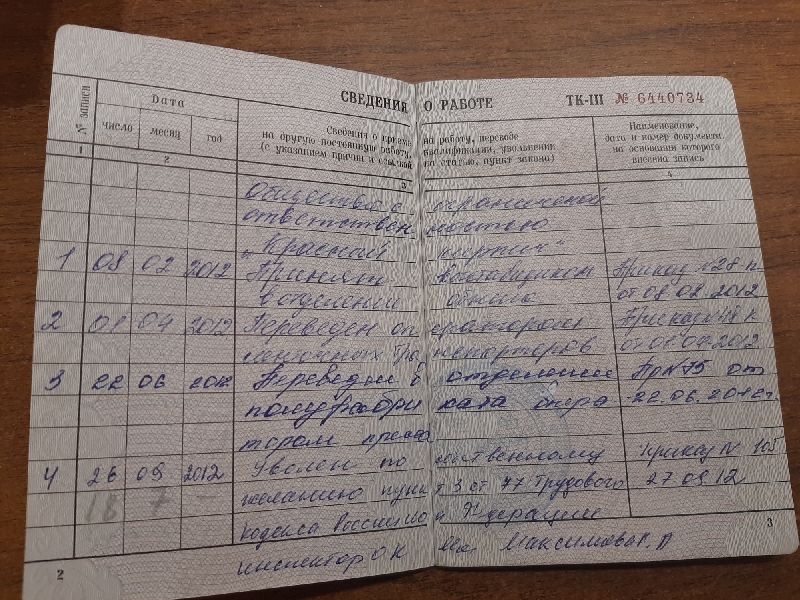 СВЕДЕНИЯ О РАБОТЕ ТК-III № 6440734
№ записи
Дата
число месяц год
Сведения о приеме на работу, переводе
на другую постоянную работу, квалификации, увольнении
(с указанием причин и ссылкой на статью, пункт закона)
Наименование,
дата и номер документа,
на основании которого
внесена запись
1 2 3 4
Общество с ограниченной
ответственностью
"Красный кирпич"
1 08 02 2012 Принят
Приказ №28 п
в отделении
от 08 02 2012
2 01 04 2012 Переведен оператором
Приказ
ленточных транспортеров
от 01 04 2012
3 22 06 2012 Переведен в отделение
Пр №75 от
полуфабриката опера
22.06.2012г.
тором пресса
4 26 09 2012 Уволен по собственному
Приказ № 105
желанию пункт 3 ст 77 Трудового
27 09 12
18 7
кодекса Российской Федерации
инспектор ОК Максимова
2 3